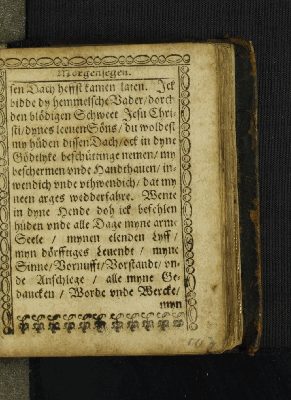 Morgensegen.
sen Dach hefft kamen laten. Ick
bidde dy hemmelsche Vader/dorch
den blödigen Schweet Jesu Chri-
sti/dynes leenen Söns/ du woldest
my hüden dissen Dach/ock in dyne
Gödtlyke beschüttinge nemen/ my
beschermen vnde Handthauen/ in-
wendich vnde vthwendich/ dat my
neen arges wedderfahre. Wente
in dyne Hende doh ick befehlen
hüden vnde alle Dage myne arme
Seele / mynen elenden Lyff /
myn dörfftiges Leuendt / myne
Sinne/Vornufft/Vorstandt/ vn-
de Anschlege / alle myne Ge-
dancken / Worde vnde Wercke/
myn